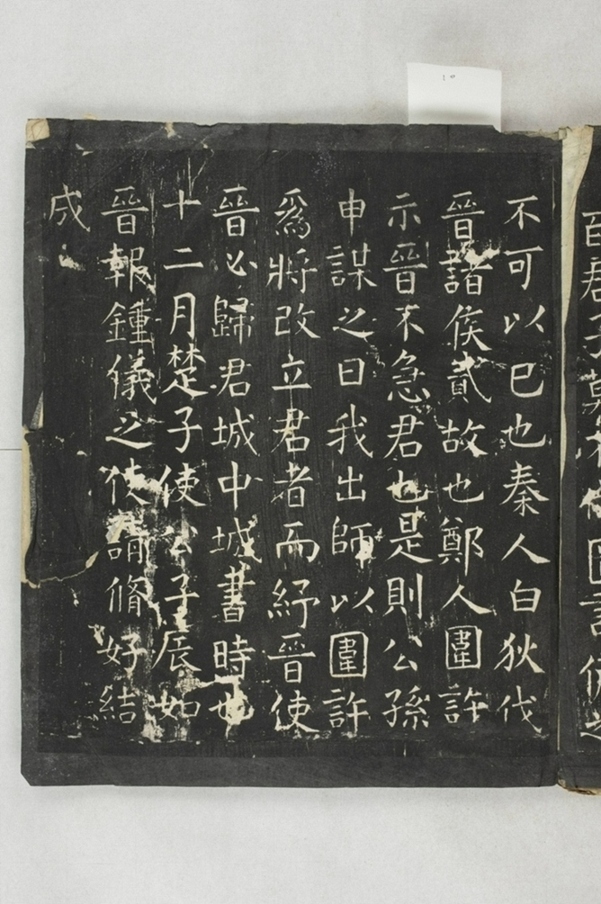 百君子莫不代匱言備之
不可以巳也秦人白狄伐
晉諸侯貳故也鄭人圍許
示晉不急君也是則公孫
申謀之曰我出師以圍許
爲將改立君者而紓晉使
晉必歸君城中城書時也
十二月楚子使公子辰如
晉報鍾儀之使請脩好結
成